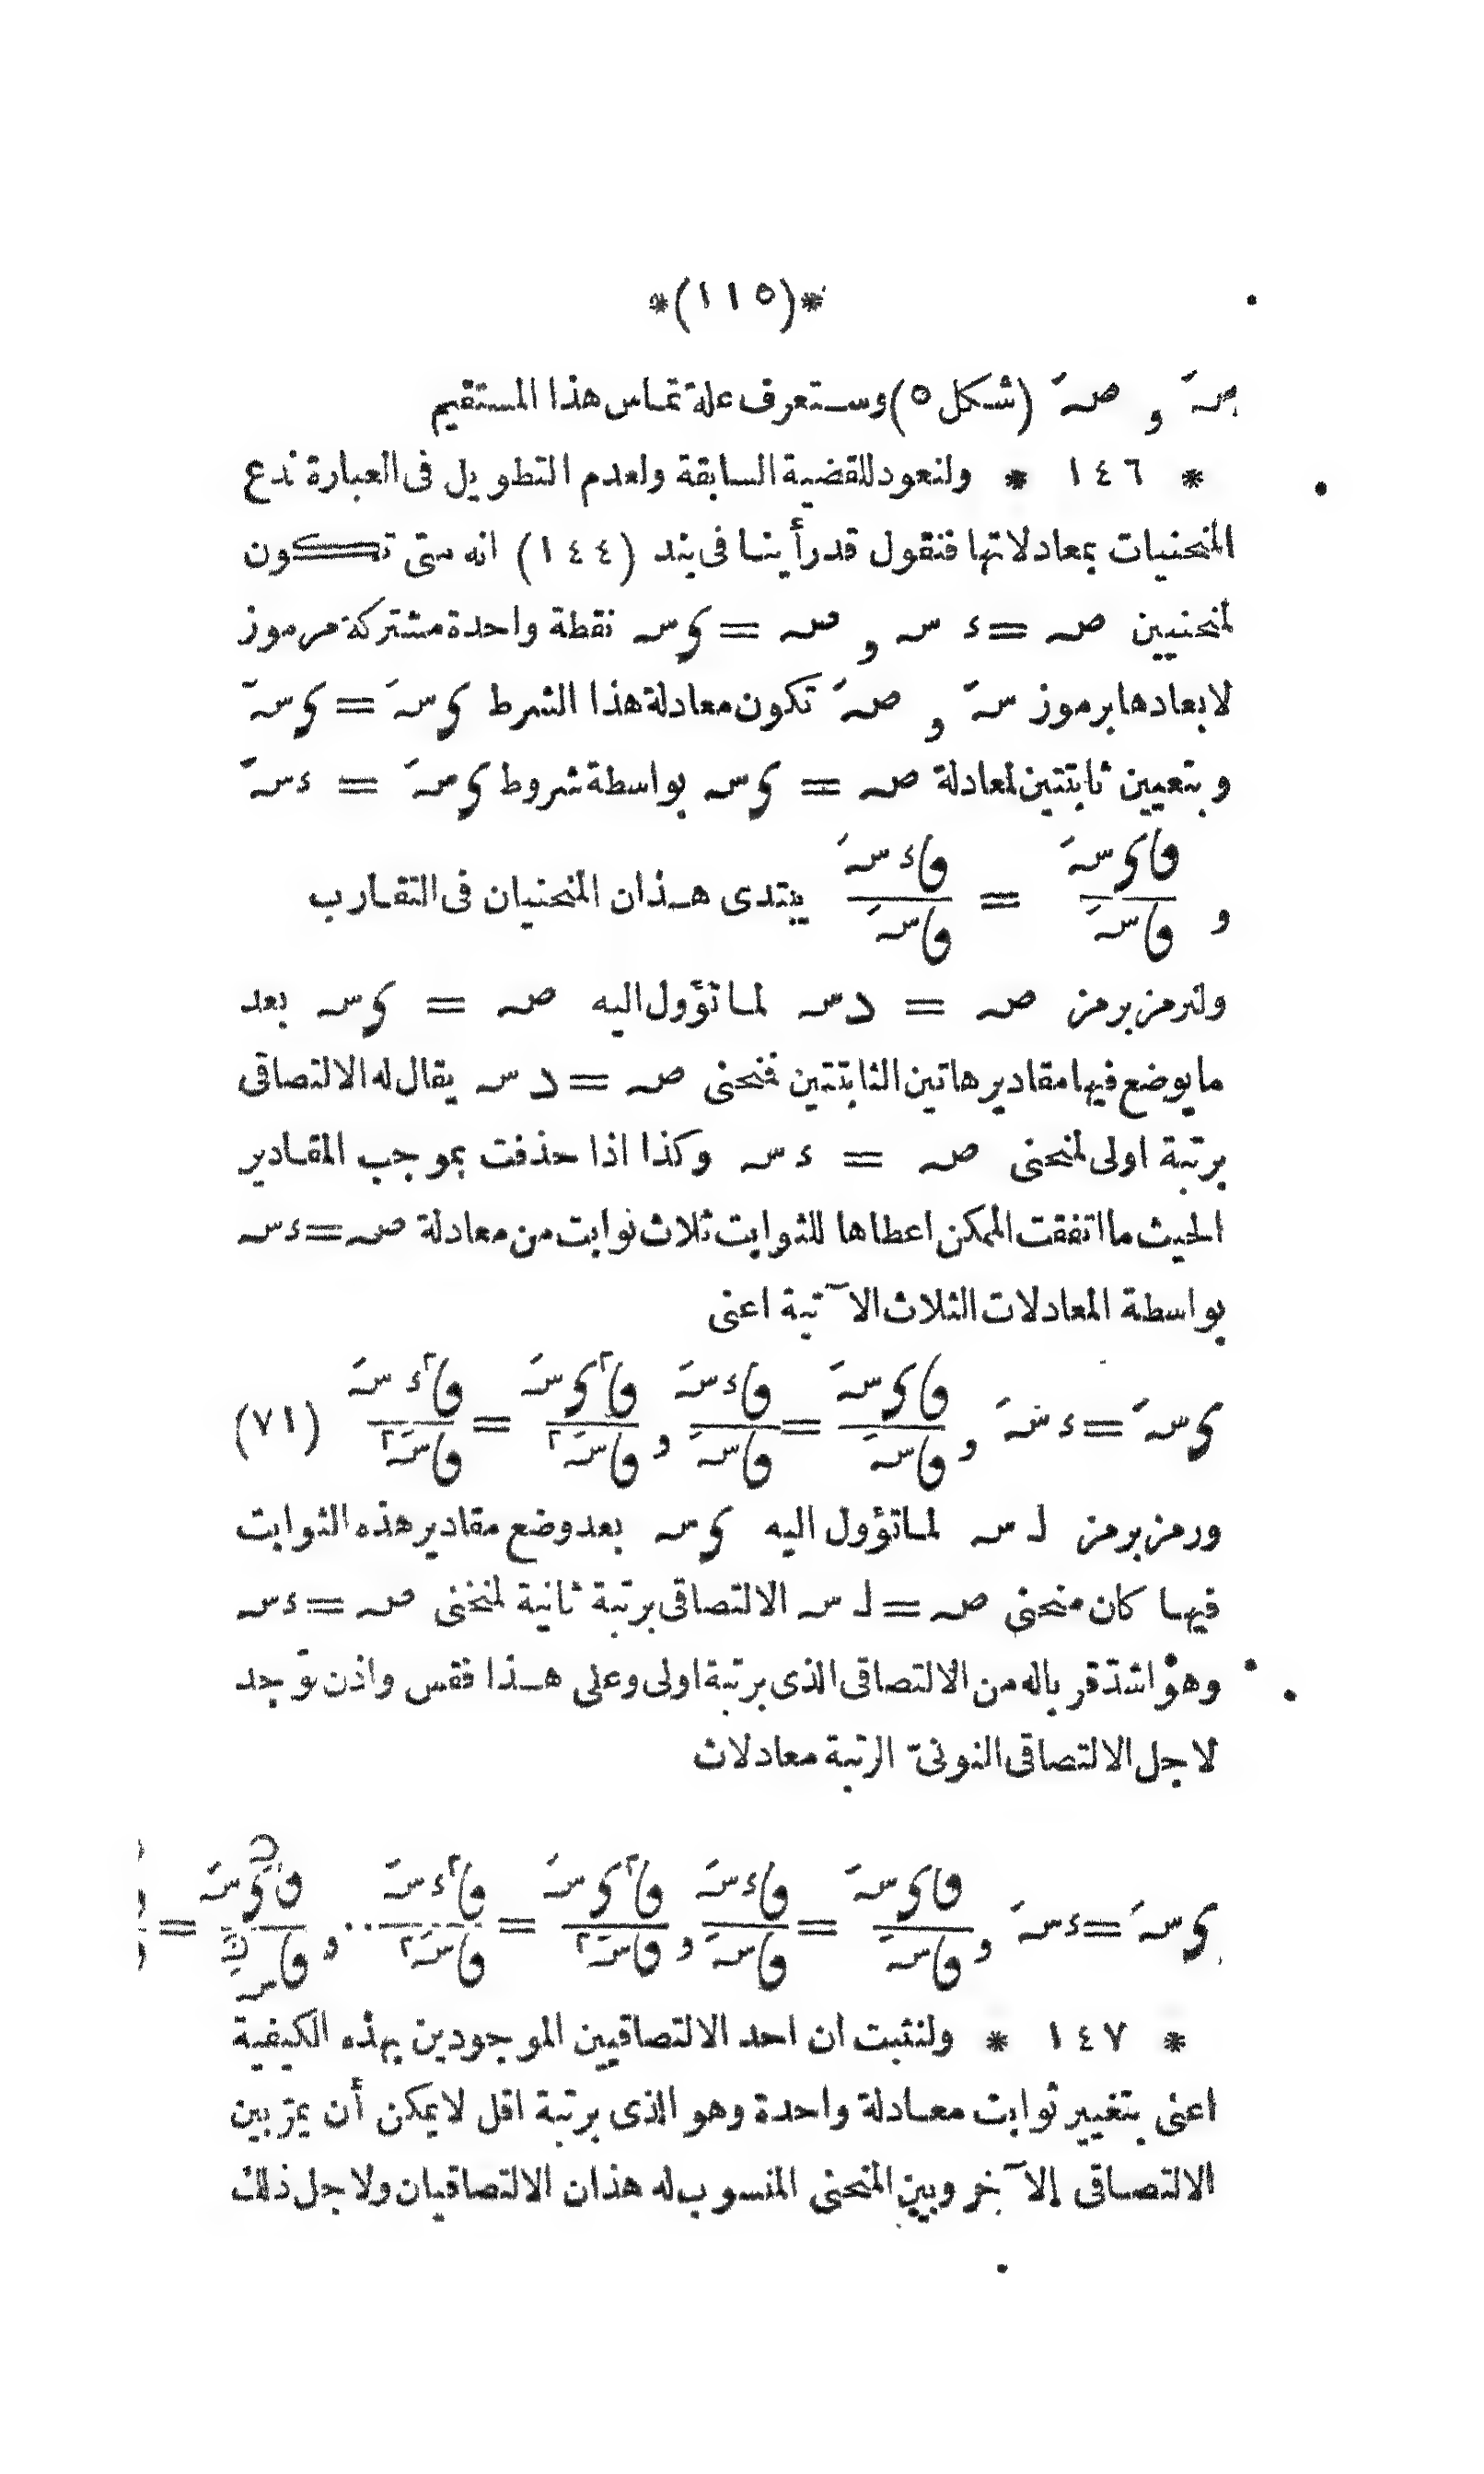 *(١١٥)*
صـَ و صـَ (شكل ٥) وستعرف علة تماس هذا المستقيم
* ١٤٦ * ولنعود للقضية السابقة ولعدم التطويل فى العبارة ندع
المنحنيات بمعادلاتها فنقول قدرأينا فى بند (١٤٤) انه متى تكون
لمنحنيين صـ = ء سـ و صـ = ى سـ نقطة واحدة مشتركة مرموز
لابعادها برموز سـَ و صـَ تكون معادلة هذا الشرط ى سـَ = ى سـَ
وبتعيين ثابتتين لمعادلة صـ = ى سـ بواسطة شروط ى سـَ = ء سـَ
و ڡا ى سـَ / ڡا سـَ = ڡا ء سـَ / ڡا سـَ يبتدى هذان المنحنيان فى التقارب
ولنرمز برمز صـ = د سـ لما تؤول اليه صـ = ى سـ بعد
ما يوضع فيها مقادير هاتين الثابتتين فمنحنى صـ = د سـ يقال له الالتصاقى
برتبة اولى لمنحنى صـ = ء سـ وكذا اذا حذفت بموجب المقادير
الحيث ما اتفقت الممكن اعطاها للثوابت ثلاث ثوابت من معادلة صـ = ء سـ
بواسطة المعادلات الثلاث الآتية اعنى
ى سـَ = ء سـَ و ڡا ى سـَ / ڡا سـَ = ڡا ء سـَ / ڡا سـَ و ڡا٢ ى سـَ / ڡا سـَ٢ = ڡا٢ ء سـَ / ڡا سـَ٢ (٧١)
ورمز برمز لـ سـ لما تؤول اليه ى سـ بعد وضع مقادير هذه الثوابت
فيها كان منحنى صـ = لـ سـ الالتصاقى برتبة ثانية لمنحنى صـ = ء سـ
وهو اشد قربا له من الالتصاقى الذى برتبة اولى وعلى هذا فقس واذن توجد
لاجل الالتصاقى النونىّ الرتبة معادلات
ى سـَ = ء سـَ و ڡا ى سـَ / ڡا سـَ = ڡا ء سـَ / ڡا سـَ و ڡا٢ ى سـَ / ڡا سـَ٢ = ڡا٢ ء سـَ / ڡا سـَ٢ .. و ڡان ى سـَ / ڡا سـَن =
* ١٤٧ * ولنثبت ان احد الالتصاقيين الموجودين بهذه الكيفية
اعنى بتغيير ثوابت معادلة واحدة وهو الذى برتبة اقل لا يمكن أن يمرّ بين
الالتصاقى الآخر وبين المنحنى المنسوب له هذان الالتصاقيان ولاجل ذلك